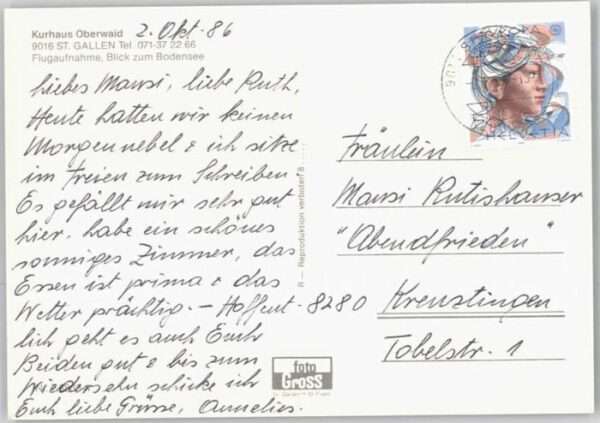 Kurhaus Oberwald
9016 ST. GALLEN Tel. 071-37 22 66
Flugaufnahme, Blick zum Bodensee
2. Okt. 86
Liebes Mausi, liebe Ruth,
Heute hatten wir keinen
Morgennebel & ich sitze
im Freien zum Schreiben.
Es gefällt mir sehr gut
hier, habe ein schönes
sonniges Zimmer, das
Essen ist prima & das
Wetter prächtig. – Hoffent-
lich geht es auch Euch
Beiden gut & bis zum
Wiedersehn schicke ich
Euch liebe Grüsse, Annelies.
R — Reproduktion verboten 8
foto
Gross
St. Gallen
HELVETIA
Fräulein
Mausi Rutishauser
"Abendfrieden"
8280 Kreuzlingen
Tobelstr. 1